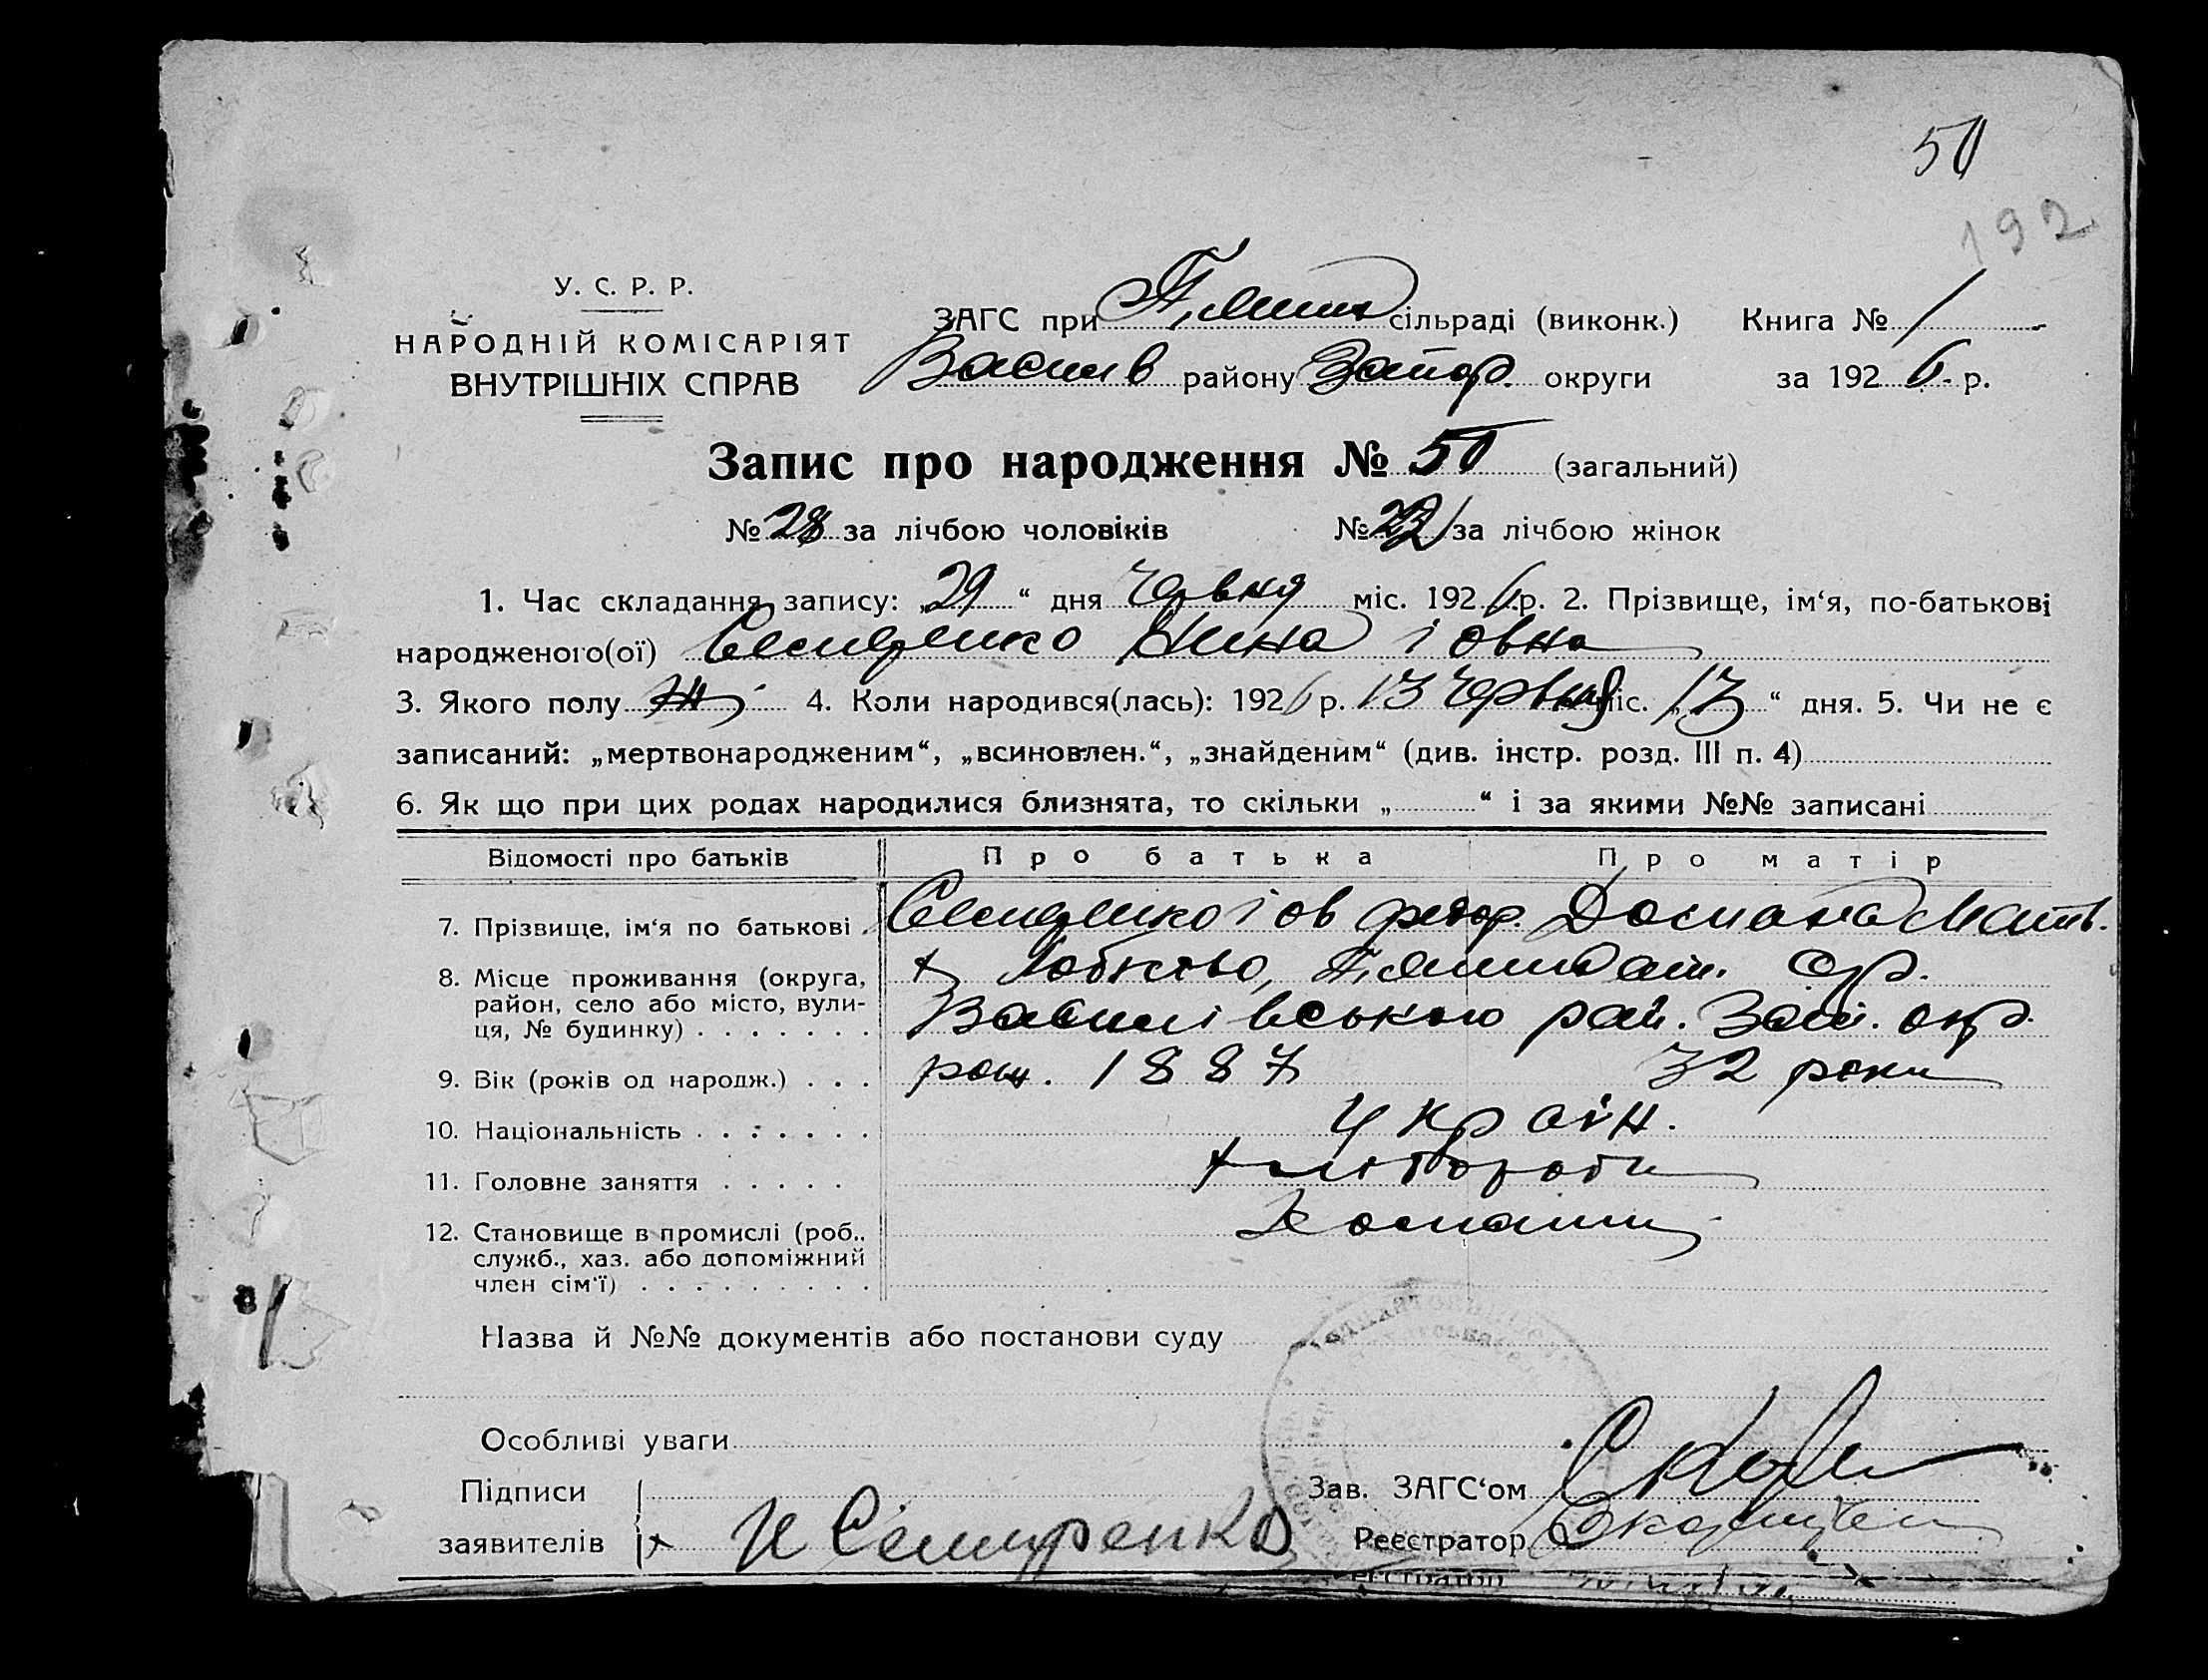 50
192
У. С. Р. Р.
НАРОДНІЙ КОМІСАРІЯТ
ВНУТРІШНІХ СПРАВ
ЗАГС при сільраді (виконк.) Книга № 1
Васил в району Запор. округи за 1926 р.
Запис про народження № 50 (загальний)
№ 28 за лічбою чоловіків № 22 за лічбою жінок
1. Час складання запису: „29“ дня Червня міс. 1926 р. 2. Прізвище, ім‘я, по-батькові
народженого(ої) Семиренко Нина іовна
3. Якого полу ж 4. Коли народився(лась): 1926 р. 13 червня міс. „13“ дня. 5. Чи не є
записаний: „мертвонародженим“, „всиновлен.“, „знайденим“ (див. інстр. розд. III п. 4)
6. Як що при цих родах народилися близнята, то скільки „ “ і за якими №№ записані
Відомості про батьків Про батька Про матір
7. Прізвище, ім‘я по батькові Семиренко іов федор. Домана Матв.
8. Місце проживання (округа,
район, село або місто, вули-
ця, № будинку)
Василівського рай. Зап. окр.
9. Вік (років од народж.) 1887 32 роки
10. Національність україн.
11. Головне заняття хлібороби
12. Становище в промислі (роб.,
служб., хаз. або допоміжний
член сім‘ї)
Назва й №№ документів або постанови суду
Особливі уваги
Підписи
заявителів И Семиренко
Зав. ЗАГС‘ом
Реєстратор